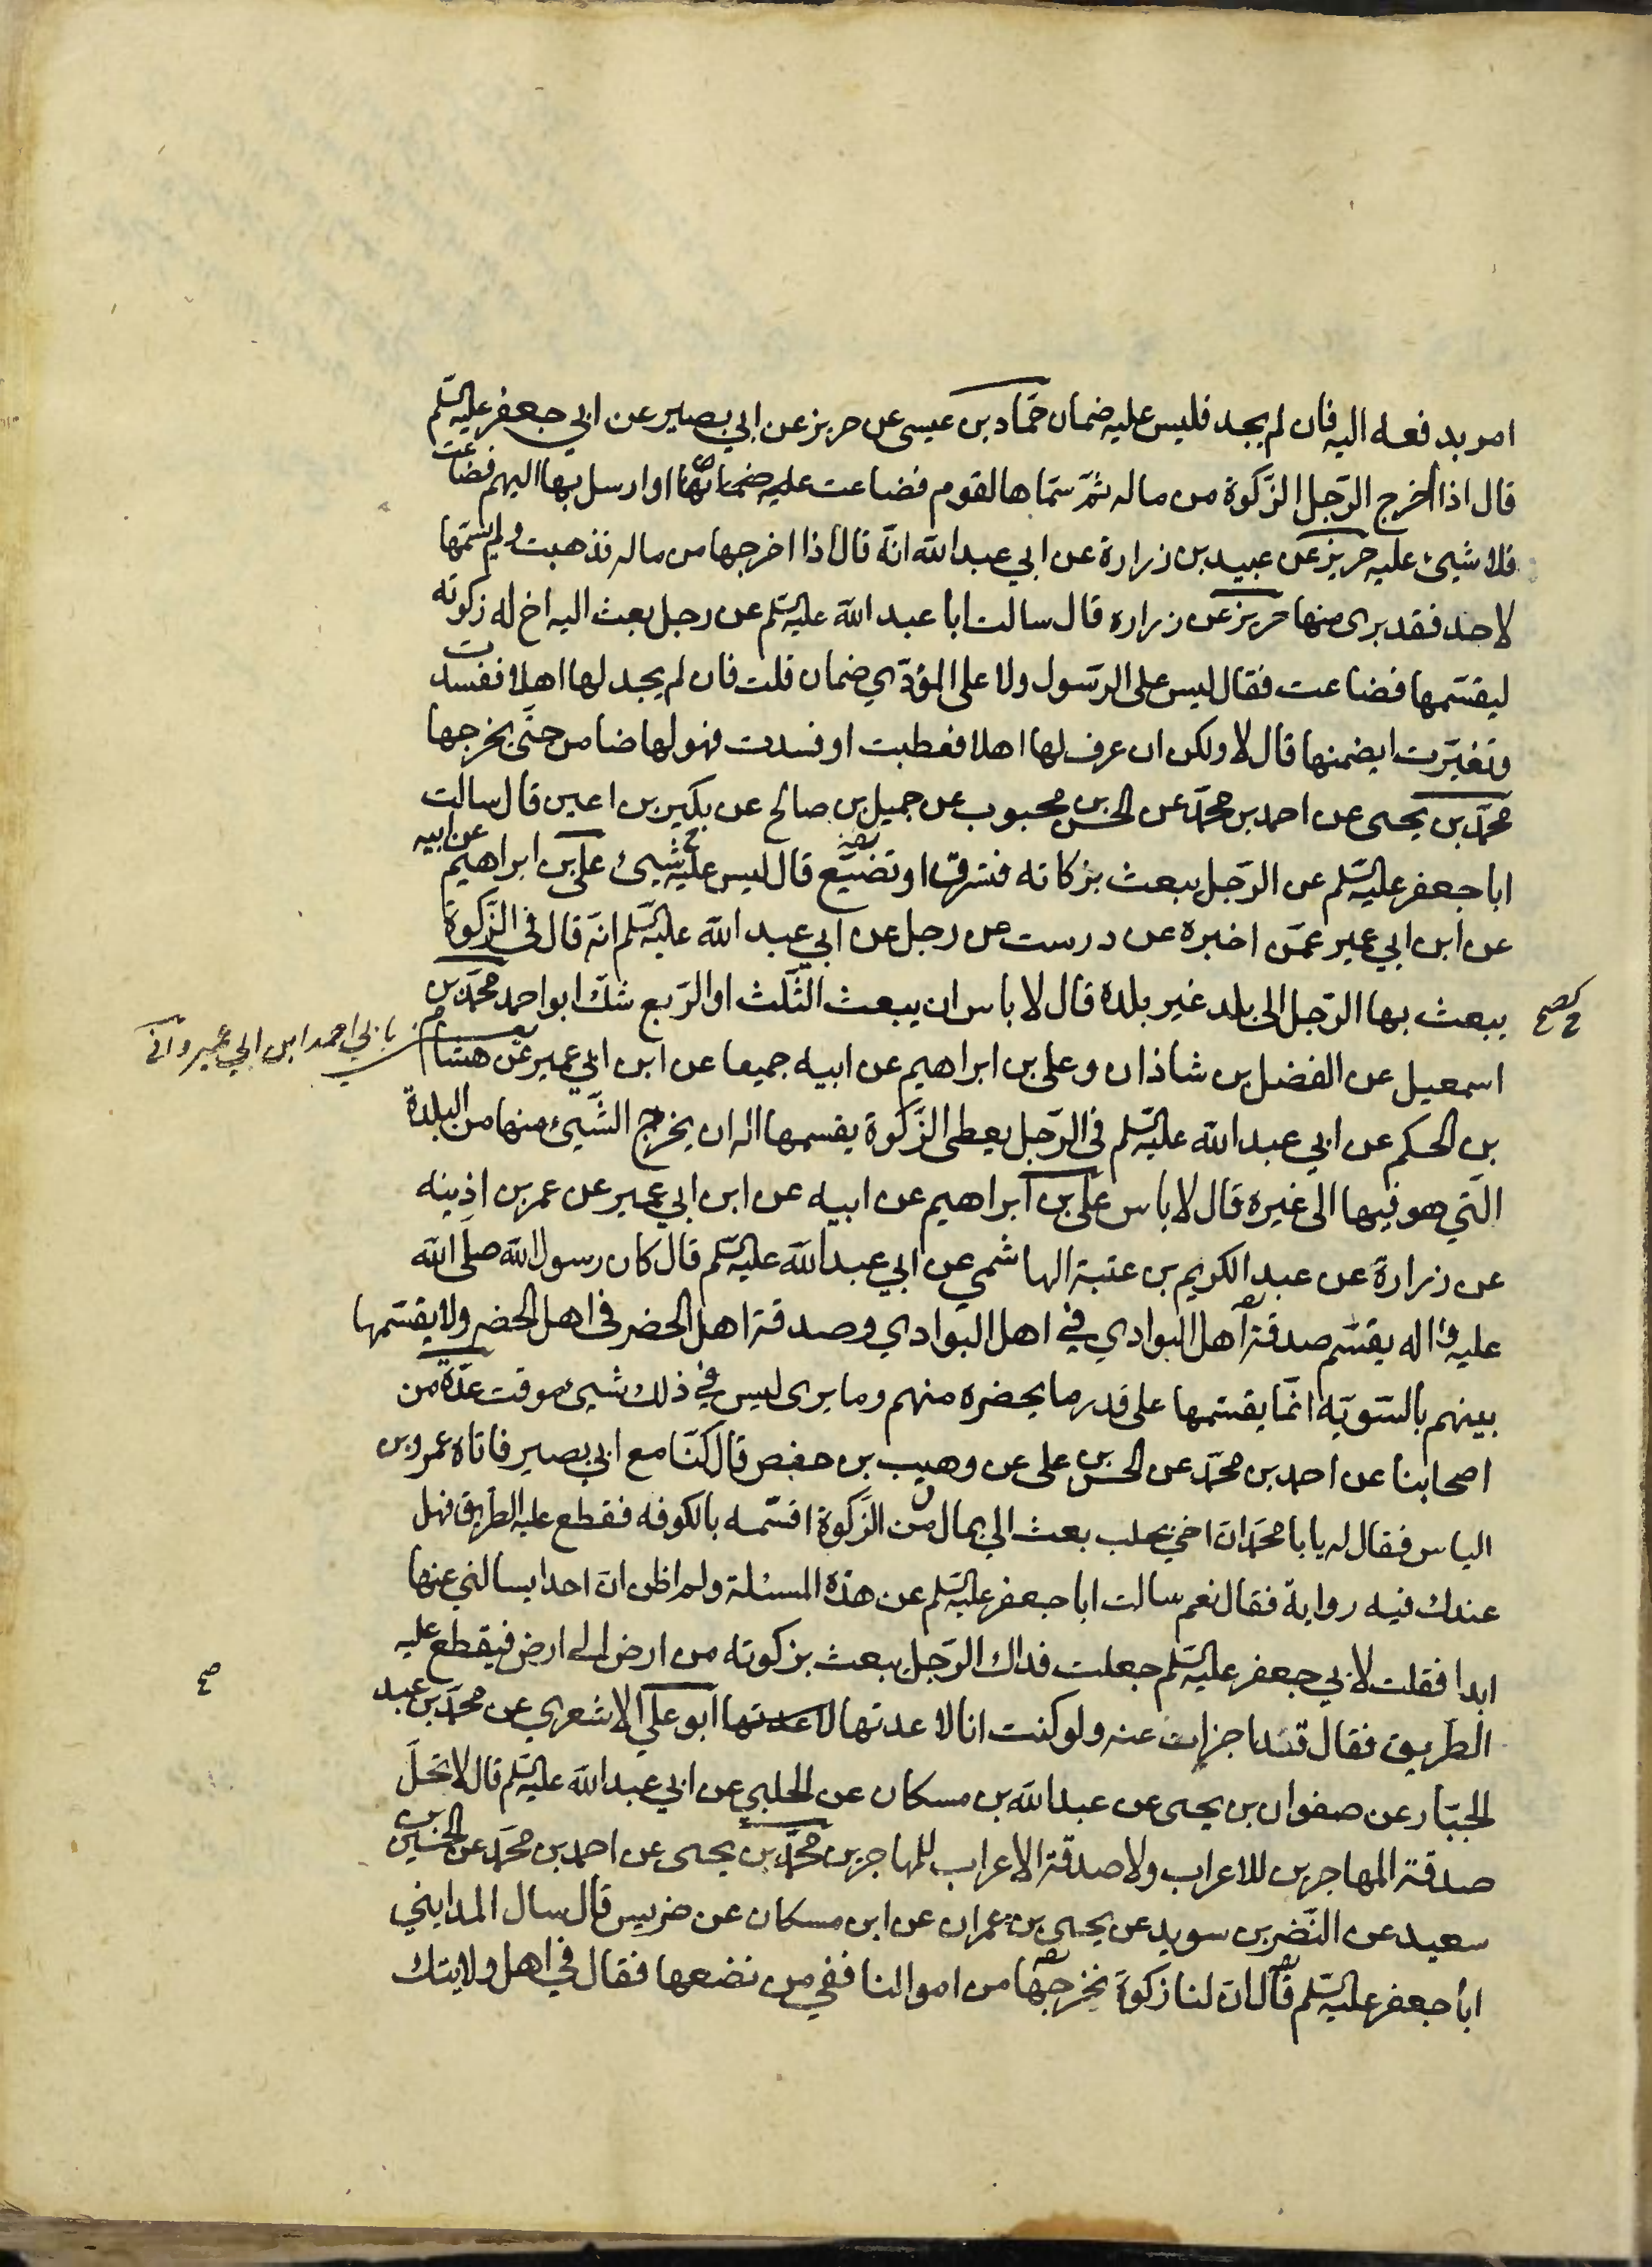 امر بدفعه اليه فان لم يجد فليس عليه ضمان حمّاد بن عيسى عن حريز عن ابي بصير عن ابي جعفر عليه السّلم
قال اذا اخرج الرّجل الزّكوة من ماله ثمّ سمّاها لقوم فضاعت او ارسل بها اليهم فضاعت
فلا شيئ عليه حريز عن عبيد بن زرارة عن ابي عبد الله انّه قال اذا اخرجها من ماله فذهبت ولم يسمّها
لاحد فقد برى منها حريز عن زراره قال سالت ابا عبد الله عليه السّلم عن رجل بعث اليه اخ له زكوته
ليقسّمها فضاعت فقال ليس على الرّسول ولا على المؤدّي ضمان قلت فان لم يجد لها اهلا ففسدت
وتغيّرت ايضمنها قال لا ولكن ان عرف لها اهلا فعطبت او فسدت فهو لها ضامن حتّى يخرجها
محمّد بن يحيى عن احمد بن محمّد عن الحسن بن محبوب عن جميل بن صالح عن بكير بن اعين قال سالت
ابا جعفر عليه السّلم عن الرّجل يبعث بزكاته فتسرق او تضيّع قال ليس عليه شيئ علي بن ابراهيم عن ابيه
عن ابن ابي عمير عمّن اخبره عن درست عن رجل عن ابي عبد الله عليه السّلم انّه قال في الزّكوة
يبعث بها الرّجل الى بلد غير بلده قال لا باس ان يبعث الثّلث او الرّبع شكّ ابو احمد محمّد بن
بابي احمد ابن ابي عمير
اسمعيل عن الفضل بن شاذان وعلى بن ابراهيم عن ابيه جميعا عن ابن ابي عمير عن هشام
بن الحكم عن ابي عبد الله عليه السّلم في الرّجل يعطى الزّكوة يقسمها اله ان يخرج الشّيئ منها من البلدة
الّتي هو فيها الى غيره قال لا باس علي بن ابراهيم عن ابيه عن ابن ابي عمير عن عمر بن اذينه
عن زرارة عن عبد الكريم بن عتبة الهاشمي عن ابي عبد الله عليه السّلم قال كان رسول الله صلّى الله
عليه واله يقسّم صدقة اهل البوادي في اهل البوادي وصدقة اهل الحضر في اهل الحضر ولا يقسّمها
بينهم بالسّويّه انّما يقسّمها على قدر ما يحضره منهم وما يرى ليس في ذلك شيئ موقت عدّة من
اصحابنا عن احمد بن محمّد عن الحسن بن على عن وهيب بن حفص قال كنّا مع ابي بصير فاتاه عمرو بن
الياس فقال له يا با محمّد انّ اخي بحلب بعث الي بمال من الزّكوة اقسّمه بالكوفه فقطع عليه الطّريق فهل
عندك فيه رواية فقال نعم سالت ابا جعفر عليه السّلم عن هذه المسئلة ولم اظن انّ احدا يسالني عنها
ابدا فقلت لابي جعفر عليه السّلم جعلت فداك الرّجل يبعث بزكوته من ارض الى ارض فيقطع عليه
الطّريق فقال قد اجزات عنه ولو كنت انا لاعدتها ابو علي الاشعري عن محمّد بن عبد
الجبّار عن صفوان بن يحيى عن عبد الله بن مسكان عن الحلبي عن ابي عبد الله عليه السّلم قال لا تحلّ
صدقة المهاجرين للاعراب ولا صدقة الاعراب للمهاجرين محمّد بن يحيى عن احمد بن محمّد عن الحسين بن
سعيد عن النّضر بن سويد عن يحيى بن عمران عن ابن مسكان عن ضريس قال سال المدايني
ابا جعفر عليه السّلم قال انّ لنا زكوة نخرجها من اموالنا ففي من نضعها فقال في اهل ولايتك